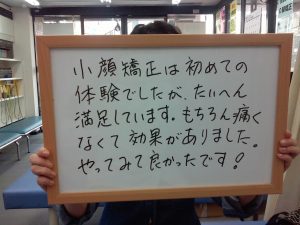 小顔矯正は初めての
体験でしたが、たいへん
満足しています。もちろん痛く
なくて効果がありました。
やってみて良かったです!